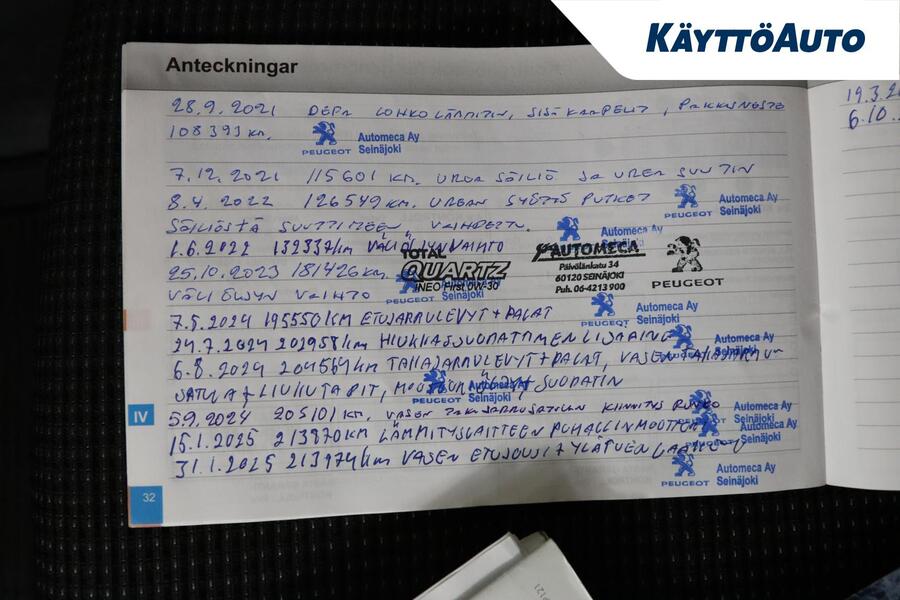 KÄYTTÖAUTO
Anteckningar
28.9.2021 DEFA LOHKOLÄMMITIN, SISÄKAAPELIT, PAKKASNESTE
108393 KM.
PEUGEOT Automeca Ay Seinäjoki
7.12.2021 115601 KM. UREA SÄILIÖ JA UREA SUUTIN
8.4.2022 126549 KM. UREAN SYÖTTÖ PUTKET
PEUGEOT Automeca Ay Seinäjoki
SÄILIÖSTÄ SUUTTIMEEN VAIHDETTU.
Automeca Ay Seinäjoki
1.6.2022 132337km VÄLIÖLJYNVAIHTO
TOTAL QUARTZ INEO First 0W-30
AUTOMECA
Päivölänkatu 34
60120 SEINÄJOKI
Puh. 06-4213 900
PEUGEOT
25.10.2023 181426 KM.
VÄLI ÖLJYN VAIHTO
Seinäjoki
7.5.2024 195550 KM ETUJARRULEVYT + PALAT
PEUGEOT Automeca Ay Seinäjoki
24.7.2024 202958km HIUKKASSUODATTIMEN LISÄAINE
Automeca Ay
6.8.2024 204564 KM TAKAJARRULEVYT + PALAT, VASEN TAKAJARRU-
SATULA + LIUKUTAPIT, SUODATIN
Automeca Ay
5.9.2024 205101 KM. VASEN TAKAJARRUSATULAN KIINNITYS RUNKO
Automeca Ay Seinäjoki
15.1.2025 213870KM LÄMMITYSLAITTEEN PUHALLINMOOTTORI
Automeca Ay Seinäjoki
31.1.2025 213974km VASEN ETUJOUSI + YLÄTUEN LAAKERI
PEUGEOT Automeca Ay Seinäjoki
IV
32
19.3.2
6.10.